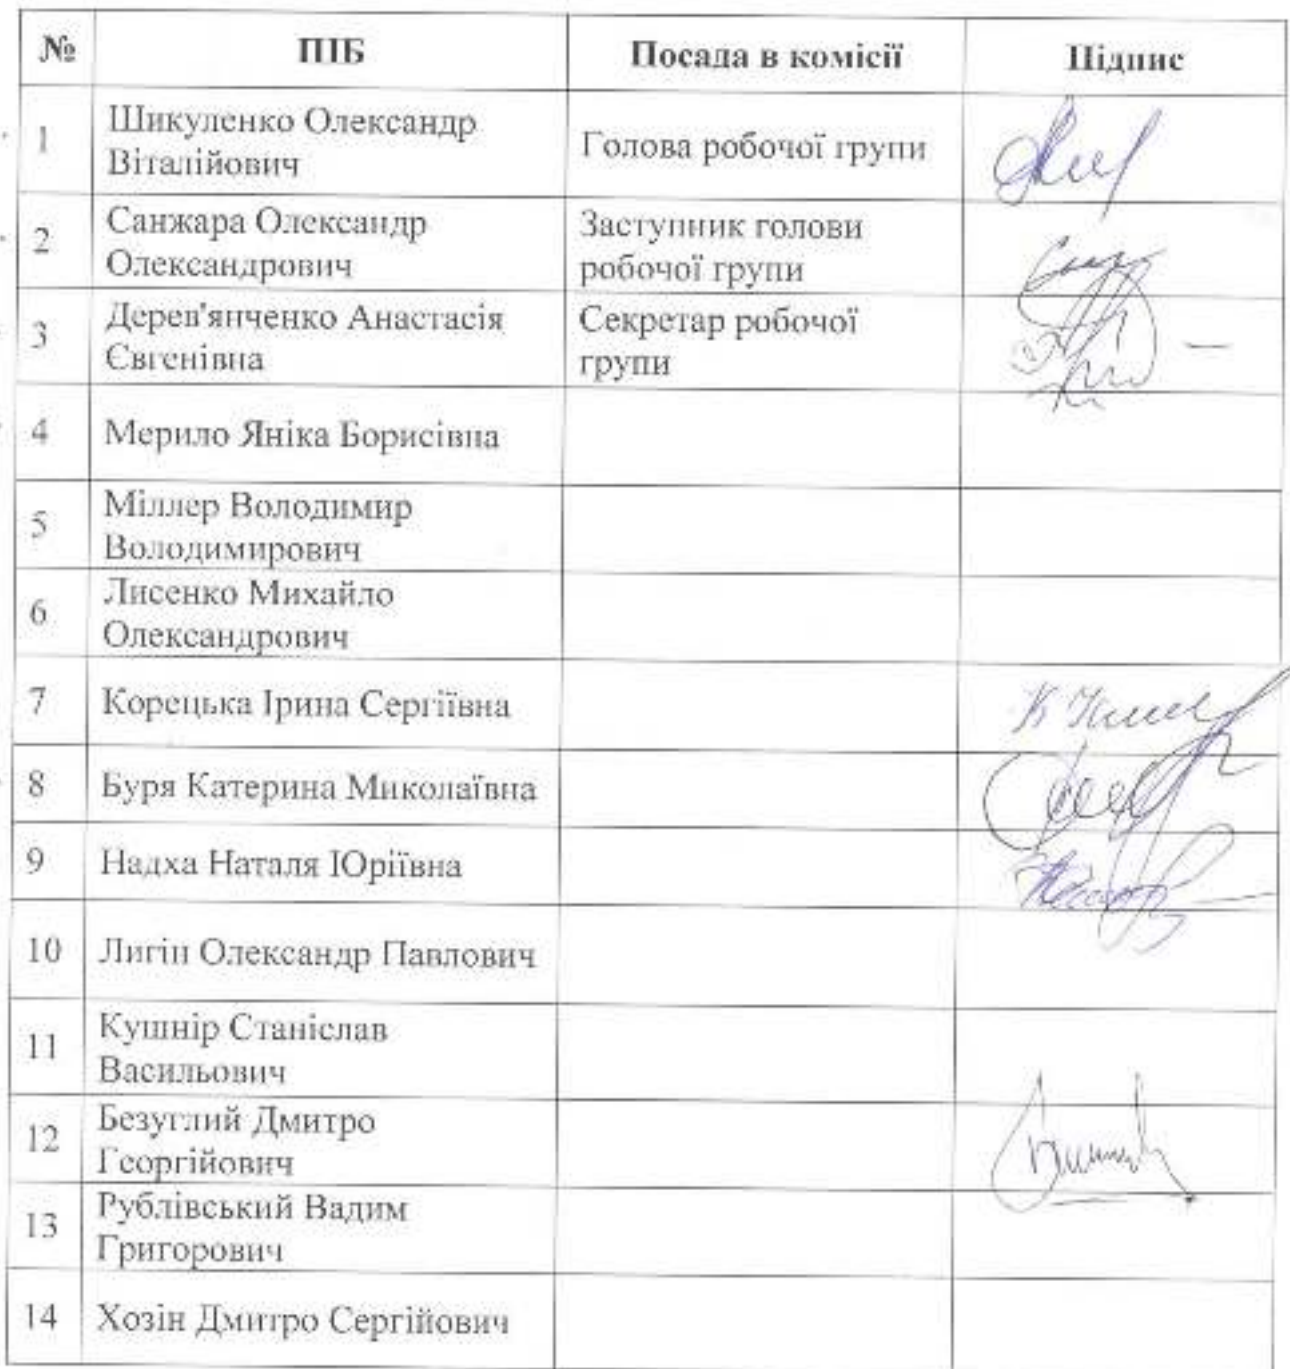 № ПІБ Посада в комісії Підпис
1 Шикуленко Олександр
Віталійович
Голова робочої групи
2 Санжара Олександр
Олександрович
Заступник голови
робочої групи
3 Дерев'янченко Анастасія
Євгенівна
Секретар робочої
групи
4 Мерило Яніка Борисівна
5 Міллер Володимир
Володимирович
6 Лисенко Михайло
Олександрович
7 Корецька Ірина Сергіївна
8 Буря Катерина Миколаївна
9 Надха Наталя Юріївна
10 Лигін Олександр Павлович
11 Кушнір Станіслав
Васильович
12 Безуглий Дмитро
Георгійович
13 Рублівський Вадим
Григорович
14 Хозін Дмитро Сергійович